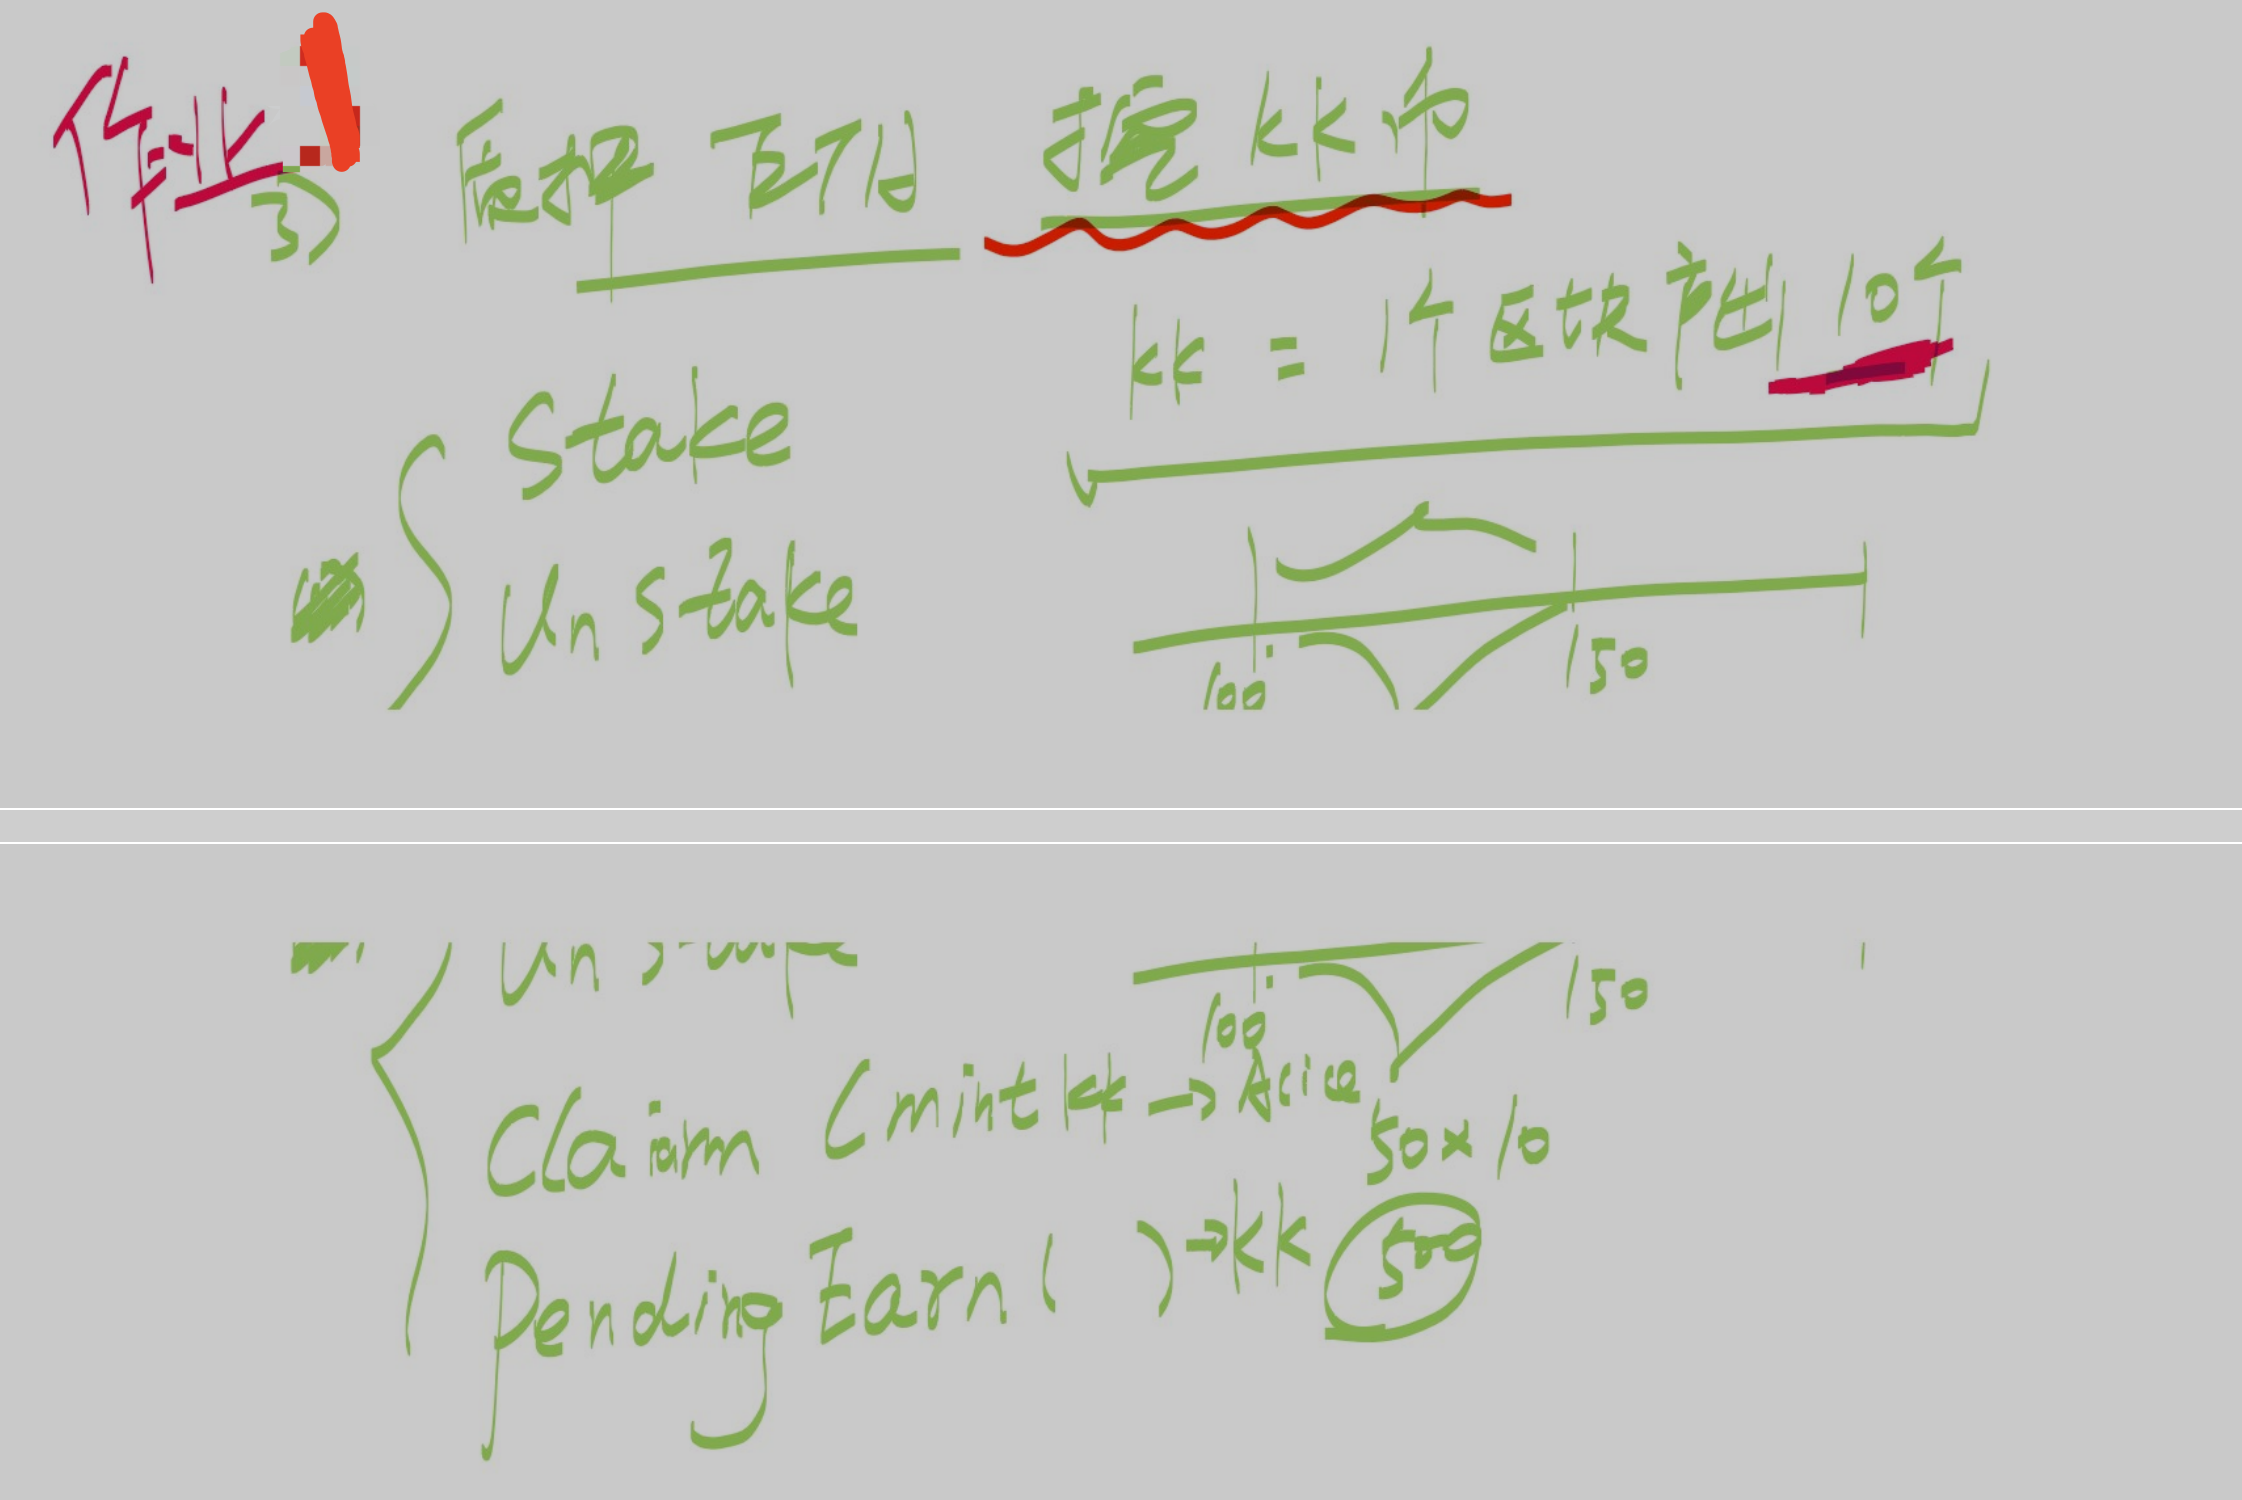 作业
3) 质押 ETH 挖 kk 币
kk = 1个区块产出 10个
Stake
Unstake
100 150
Unstake
100 150
Claim (mint kk → Alice
50×10
Pending Earn ( ) → kk 500